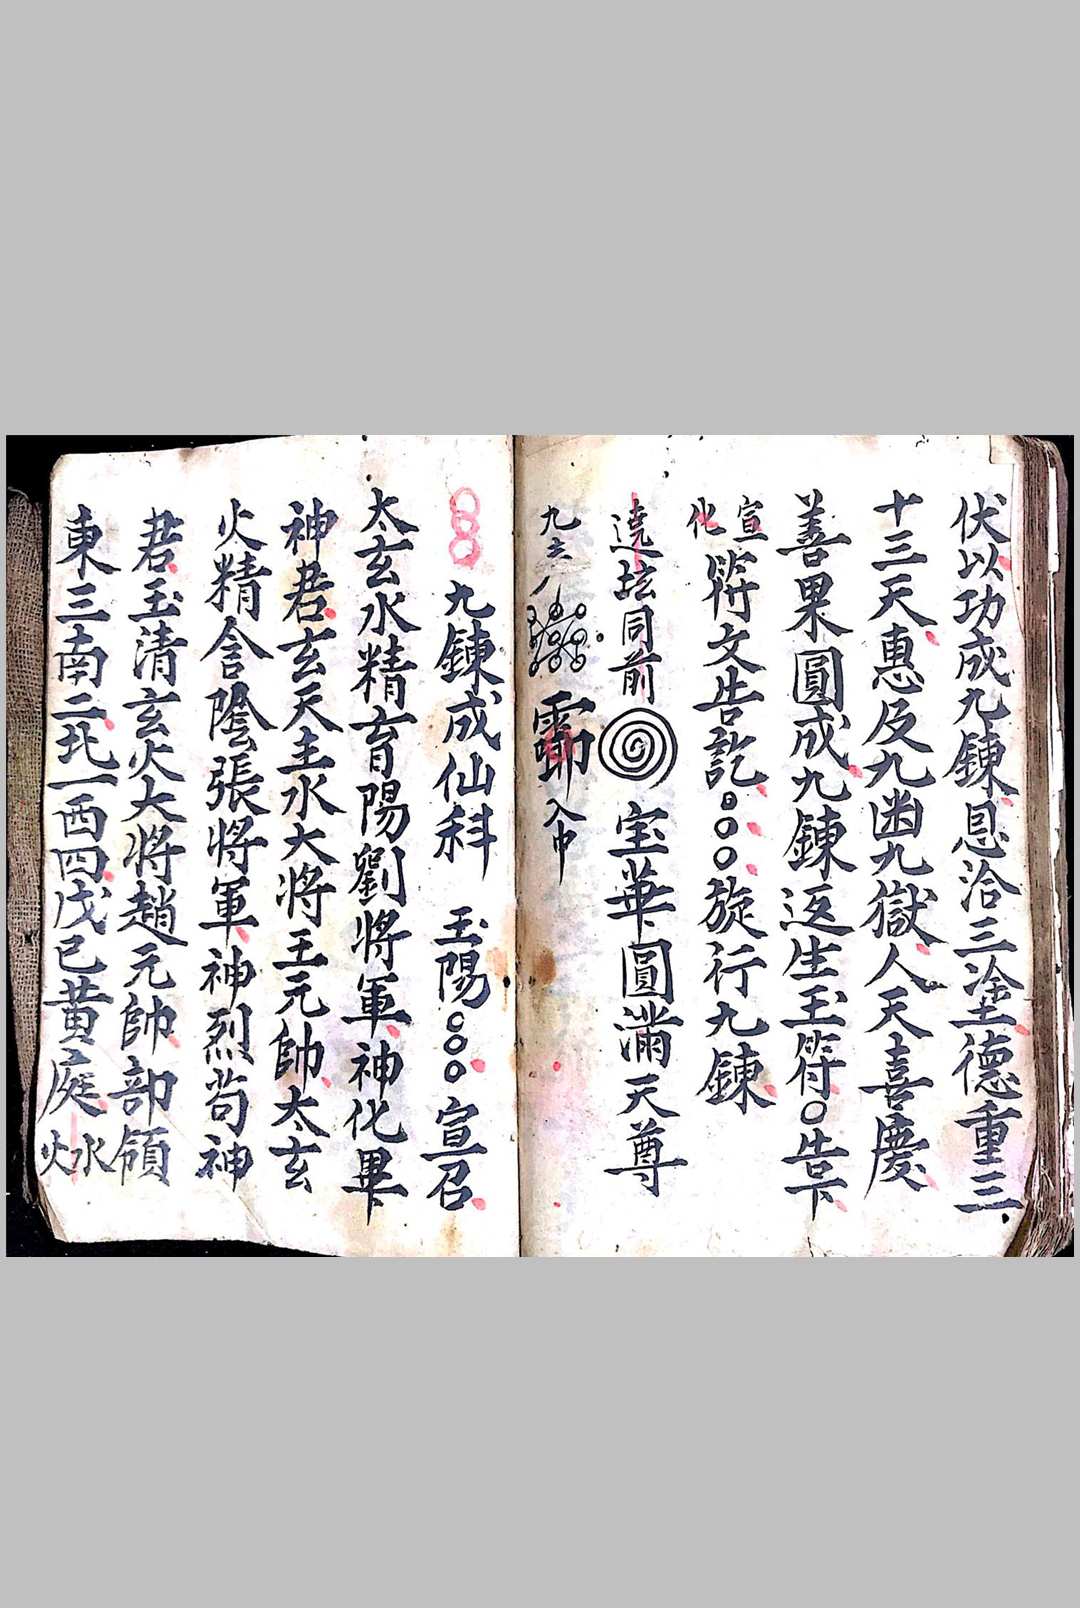 伏以功成九鍊恩洽三塗德重三
十三天惠及九幽九獄人天喜慶
善果圓成九鍊返生玉符〇告下
宣化符文告訖〇〇〇旋行九鍊
遶坛同前 宝華圓滿天尊
九六 入中
九鍊成仙科 玉陽〇〇〇宣召
太玄水精育陽劉將軍神化畢
神君玄天主水大將王元帥太玄
火精含陰張將軍神烈苟神
君玉清玄火大將趙元帥部領
東三南二北一西四戊己黃庭水火